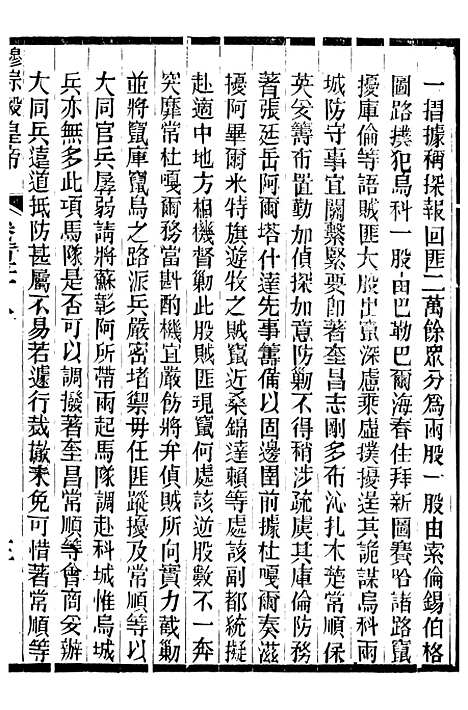 一摺據稱探報回匪二萬餘眾分為兩股一股由索倫錫伯格
圖路撲犯烏科一股由巴勒巴爾海春住拜新圖賽哈諸路竄
擾庫倫等語賊匪大股出竄深慮乘虛撲擾逞其詭謀烏科兩
城防守事宜關繫緊要即著奎昌志剛多布沁扎木楚常順保
英妥籌布置勤加偵探如意防勦不得稍涉疏虞其庫倫防務
著張廷岳阿爾塔什達先事籌備以固邊圉前據杜嘎爾奏滋
擾阿畢爾米特旗遊牧之賊竄近桑錦達賴等處該副都統擬
赴適中地方相機督勦此股賊匪現竄何處該逆股數不一奔
突靡常杜嘎爾務當斟酌機宜嚴飭將弁偵賊所向實力截勦
並將竄庫竄烏之路派兵嚴密堵禦毋任匪蹤擾及常順等以
大同官兵孱弱請將蘇彰阿所帶兩起馬隊調赴科城惟烏城
兵亦無多此項馬隊是否可以調撥著奎昌常順等會商妥辦
大同兵遠道抵防甚屬不易若遽行裁撤未免可惜著常順等
穆宗毅皇帝